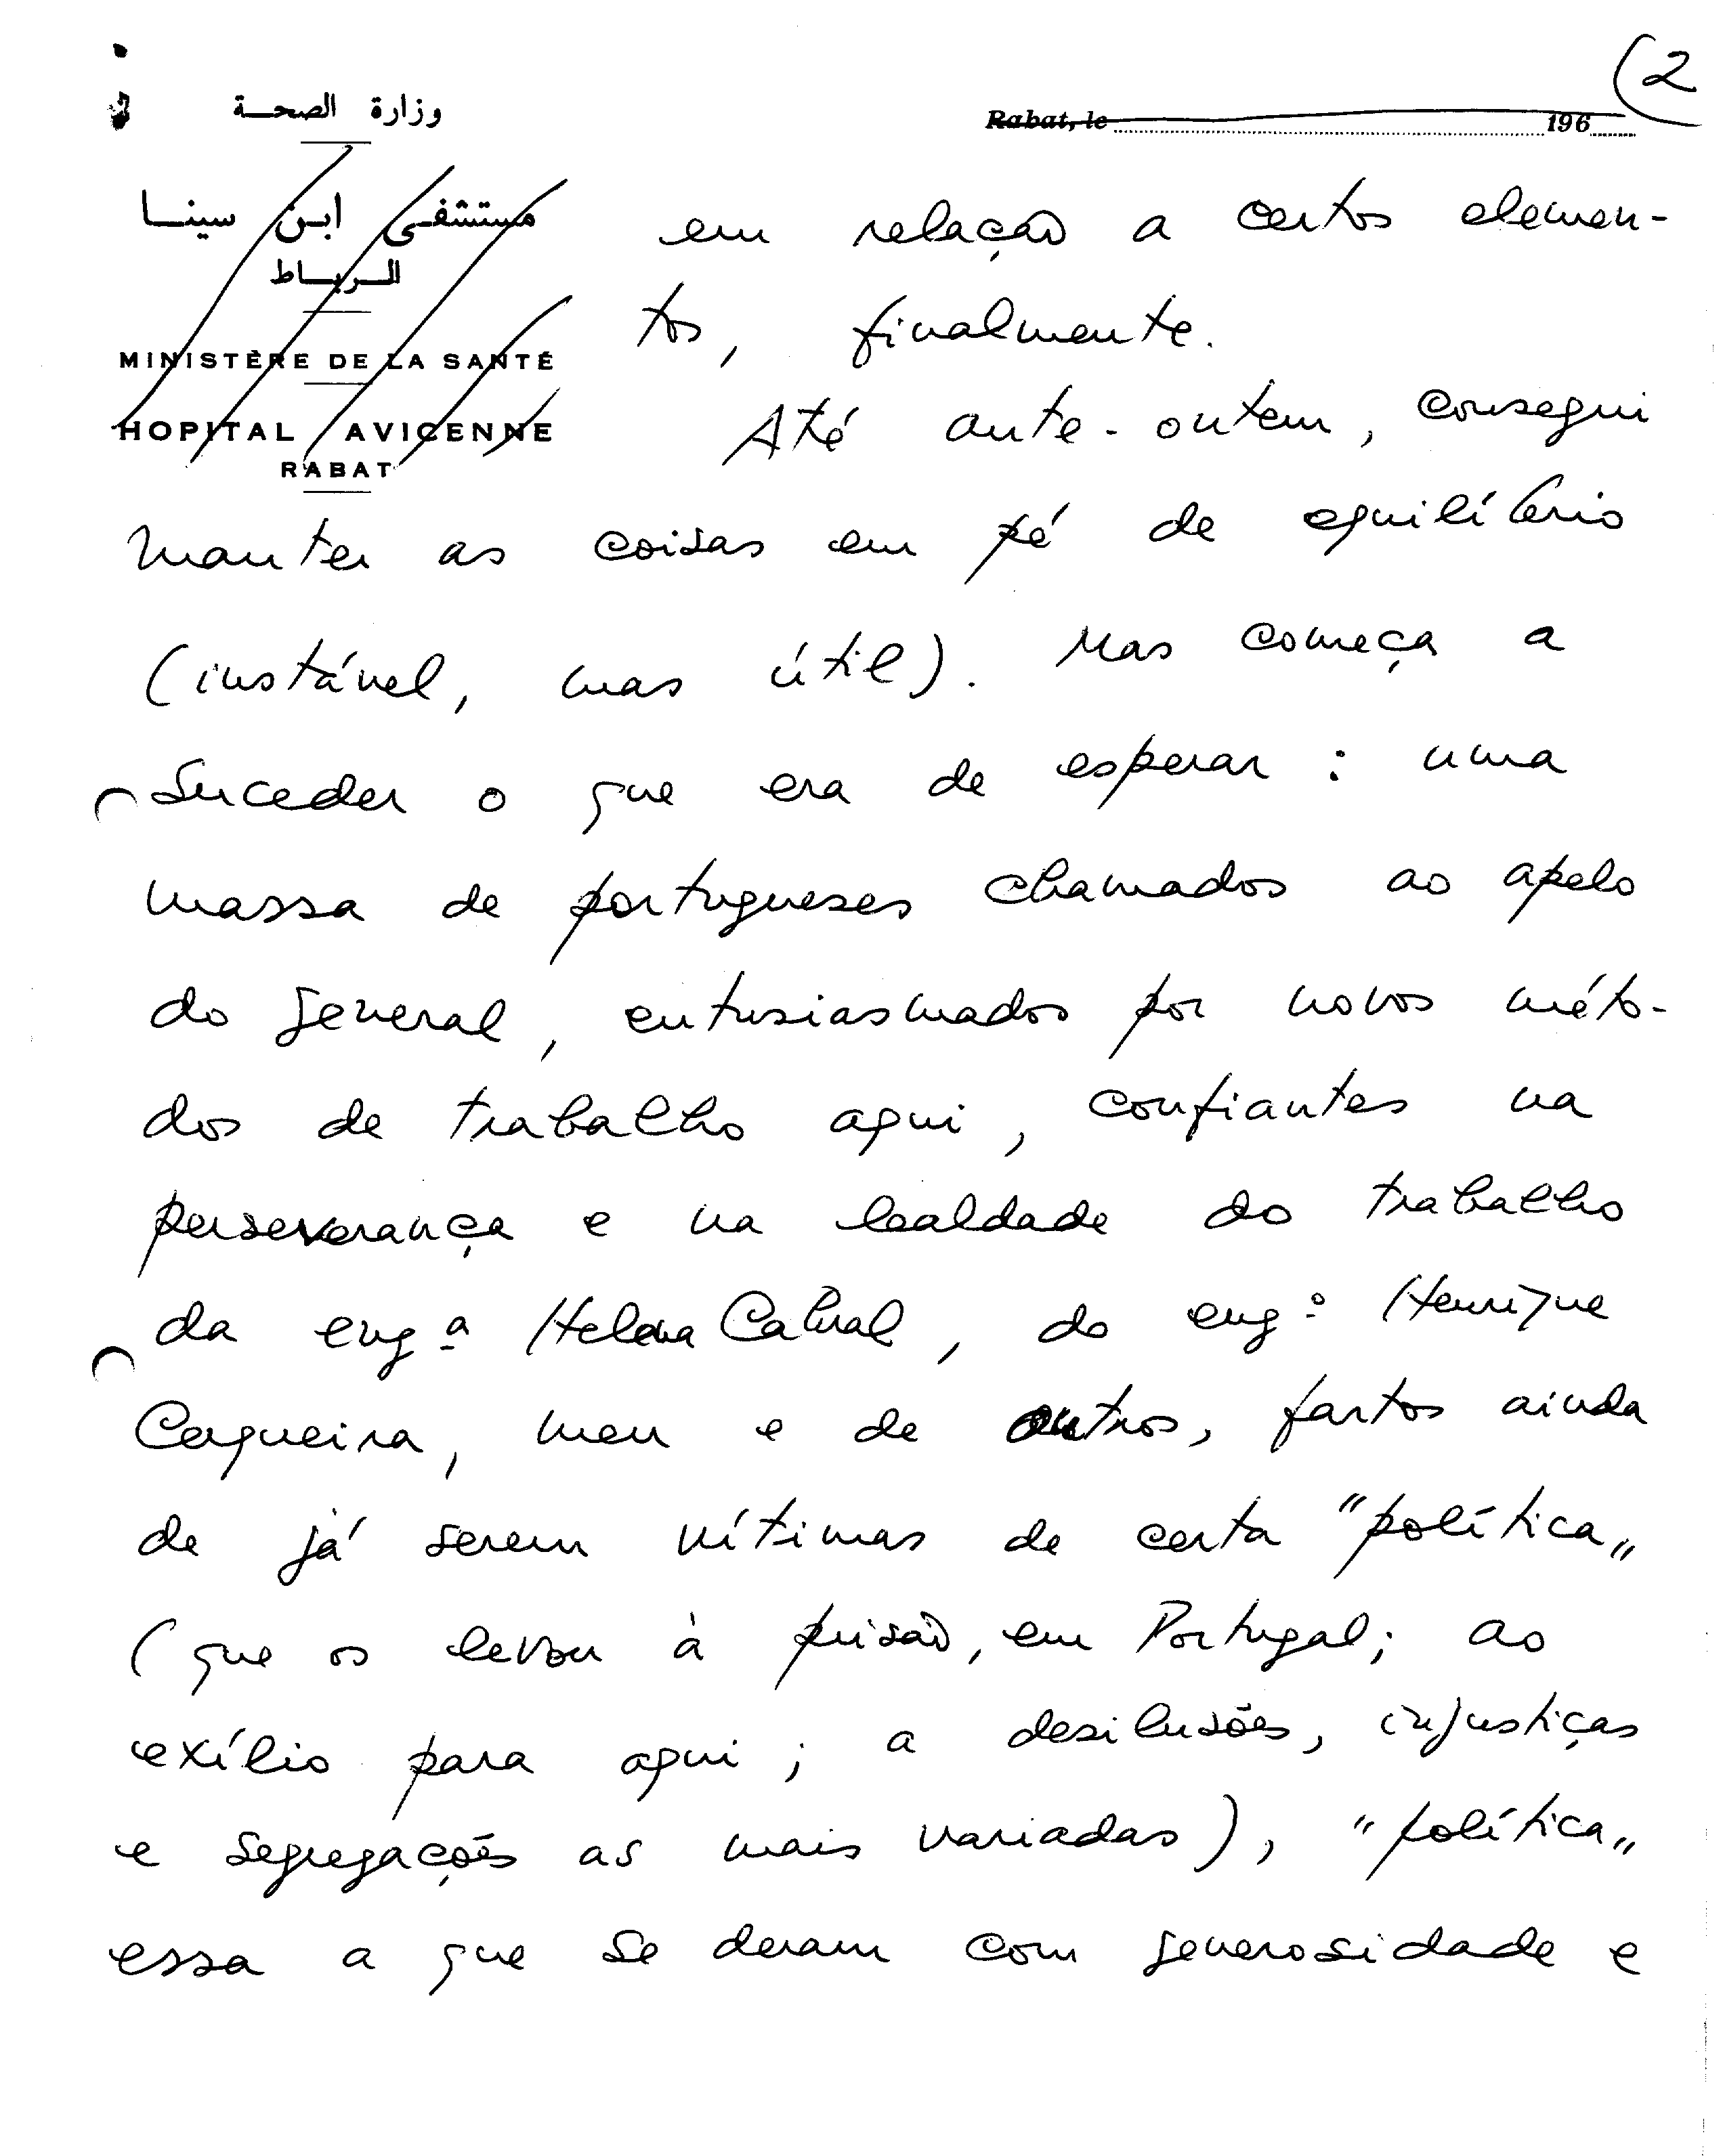 (2
وزارة الصحة
Rabat, le 196
مستشفى ابن سينا
الرباط
MINISTÈRE DE LA SANTÉ
HOPITAL AVICENNE
RABAT
em relação a certos elemen-
tos, finalmente.
Até ante-ontem, consegui
manter as coisas em pé de equilíbrio
(instável, mas útil). Mas começa a
suceder o que era de esperar: uma
massa de portugueses chamados ao apelo
do general, entusiasmados por novos méto-
dos de trabalho aqui, confiantes na
perseverança e na lealdade do trabalho
da engª Helena Cabral, do engº Henrique
Cerqueira, meu e de outros, fartos ainda
de já serem vítimas de certa "política"
(que os levou à prisão, em Portugal; ao
exílio para aqui; a desilusões, injustiças
e segregações as mais variadas), "política"
essa a que se deram com generosidade e